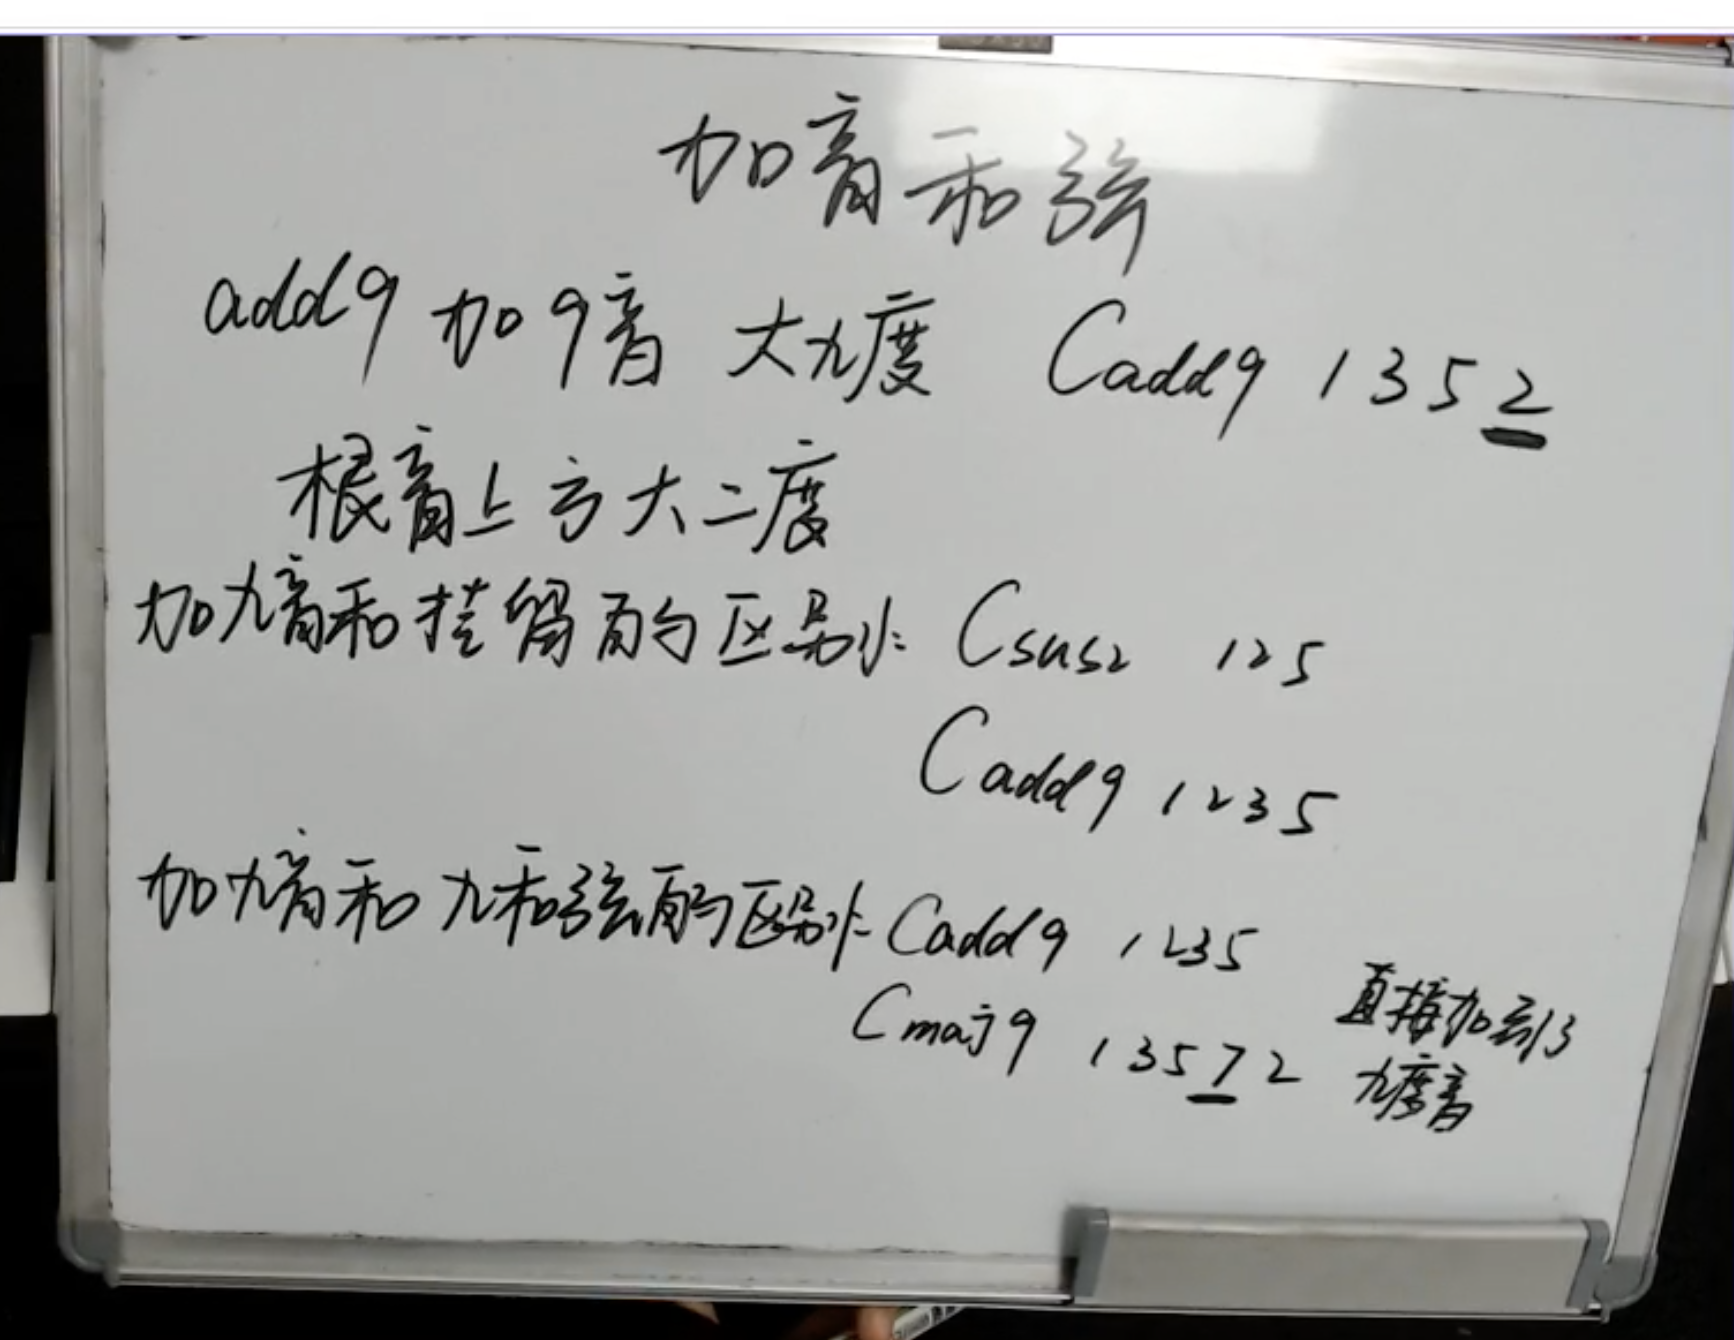 加音和弦
add9 加9音 大九度 Cadd9 1352
根音上方大二度
加九音和挂留的区别: Csus2 125
Cadd9 1235
加九音和九和弦的区别: Cadd9 1235
Cmaj9 13572
直接加到
九度音